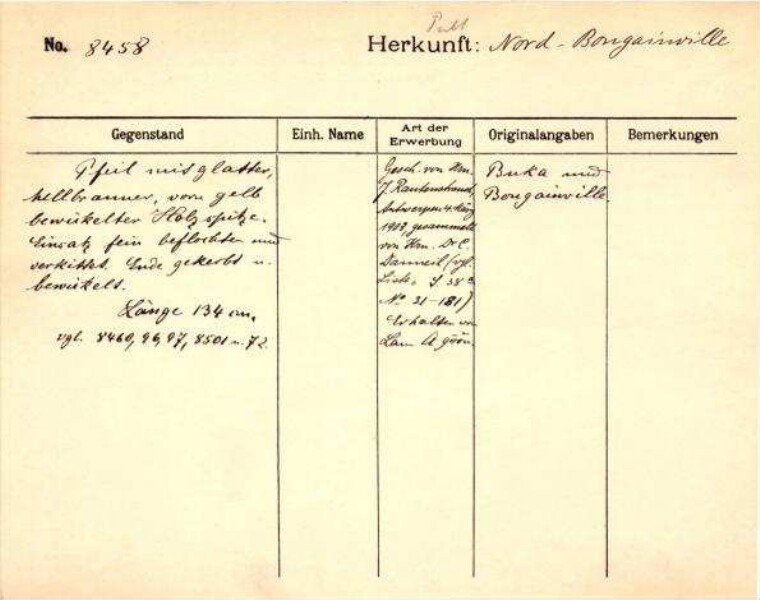 Pult
No. 8458 Herkunft: Nord-Bougainville
Gegenstand Einh. Name Art der Erwerbung Originalangaben Bemerkungen
Pfeil mit glatter,
hellbrauner, vorn gelb
bewickelter Holzspitze.
Einsatz fein beflochten und
verkittet. Ende gekerbt u.
bewickelt.
Länge 134 cm.
vgl. 8460, 96, 97, 8501 u. 72.
Gesch. von Hrn.
J. Rautenstrauch,
Antwerpen 4. März
1903, gesammelt
von Hrn. Dr C.
Danneil (vgl.
Liste, S 38
No 31-181)
Erhalten von
Buka und
Bougainville.